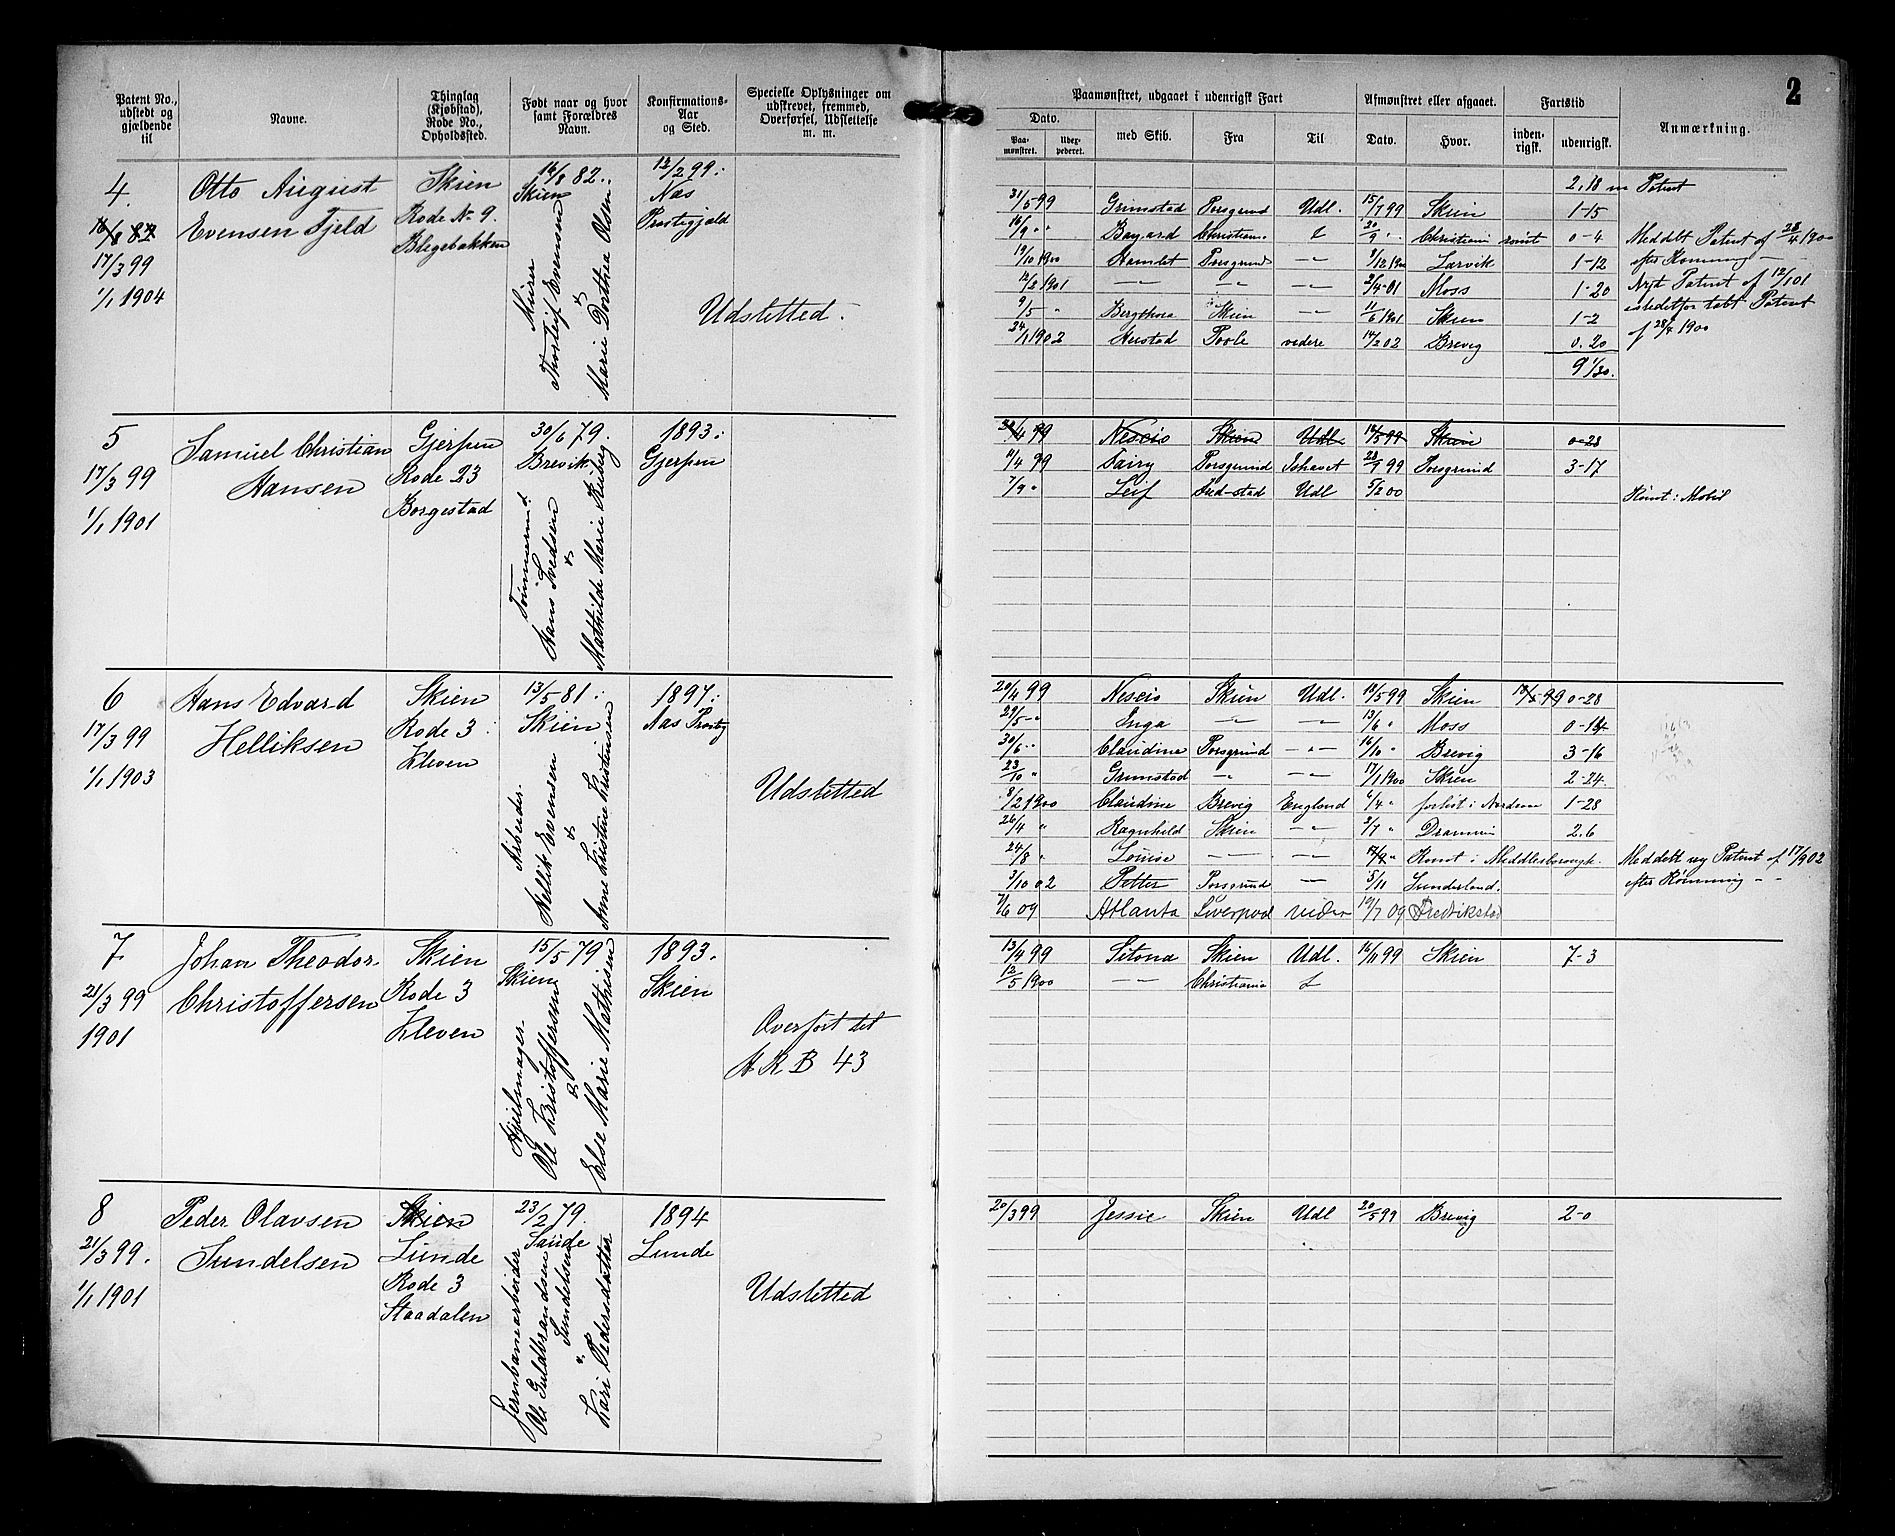 Patent No., udstedt og gjældende til
Navne.
Thinglag (Kjøbstad), Rode No., Opholdssted.
Født naar og hvor samt Forældres Navn.
Konfirmations-Aar og Sted.
Specielle Oplysninger om udskrevet, fremmed, Overførsel, Udslettelse m. m.
4.
16/8 82
17/3 99
1/1 1904
Otto August
Evensen Fjeld
Skien
Rode No 9.
Blegebakken
14/8 82.
Skien
Murer
Thorleif Evensen
&
Marie Dorthea Olsen
12/2 99.
Næs
Prestegjæld
Udsletted.
5
17/3 99
1/1 1901
Samuel Christian
Hansen
Gjerpen
Rode 23
Borgestad
30/6 79.
Brevik
Tømmerm.
Hans Svedsen
&
Mathilde Marie
1893.
Gjerpen
6
17/3 99
1/1 1903
Hans Edvard
Helliksen
Skien
Rode 3
Kleven
13/5 81.
Skien
Arbeider.
Hellik Evensen
&
Anne Kristine Kristensen
1897.
Næs
Udsletted
7
21/3 99
1901
Johan Theodor
Christoffersen
Skien
Rode 3
Kleven
15/5 79
Skien
Hjulmager
Ole Kristoffersen
&
Else Marie Mathisen
1893.
Skien
Overført til
H R B 43
8
21/3 99.
1/1 1901
Peder Olavsen
Sundelsen
Skien
Lunde
Rode 3
Staadalen
23/2 79.
Saude
Jernbanearbeider
Ole Guldbrandsen
Sundelsen
Kari Pedersdatter
1894
Lunde
Udsletted
2
Paamønstret, udgaaet i udenrigsk Fart
Afmønstret eller afgaaet.
Fartstid
Anmærkning.
Dato.
Paa-mønstret.
Uder-pederet.
med Skib.
Fra
Til
Dato.
Hvor.
inden-rigsk.
udenrigsk.
2.18 m Patent
31/5 99 Grimstad Porsgrund Udl. 15/7 99 Skien 1-15
16/9 " Bayard Christiania 20/9 " Christiania 0-4
19/10 1900 Hamlet Porsgrund -"- 1/12 1900 Larvik 1-12
12/2 1901 -"- -"- -"- 2/4 01 Moss 1-20
9/5 " Bergthora Skien -"- 11/6 1901 Skien 1-2
24/1 1902 Poole videre 14/2 02 Brevig 0.20
9 1/30.
Meddelt Patent af 28/4 1900
efter Rømming
Nyt Patent af 12/1 01
istedetfor tabt Patent
af 28/4 1900
20/4 99 Nescio Skien Udl. 18/5 99 Skien 0-28
11/4 99 Fairy Porsgrund Ishavet 28/9 99 Porsgrund 3-17
7/9 " Leif Fred-stad Udl 5/2 00
Rømt i Mobil
20/4 99 Nescio Skien Udl. 18/5 99 Skien 18/5 99 0-28
29/5 " Inga -"- -"- 13/6 " Moss 0-14
30/6 " Claudine Porsgrund -"- 16/10 " Brevig 3-16
23/10 " Grimstad -"- -"- 17/1 1900 Skien 2-24
8/2 1900 Claudine Brevig England 6/4 " forlist i Nordsøen 1-28
26/4 " Ragnhild Skien -"- 2/7 " Drammen 2.6
24/8 " Louise -"- -"- 17/9 " Rømt i Middlesborough.
3/10 02 Petter Porsgrund -"- 5/11 Sunderland.
7/6 09 Atlanta Liverpool videre 19/7 09 Fredrikstad
Meddelt ny Patent af 17/9 02
efter Rømming
13/4 99 Sitona Skien Udl. 16/11 99 Skien 7-3
12/5 1900 -"- Christiania
20/3 99 Jessie Skien Udl 20/5 99 Brevig 2-0